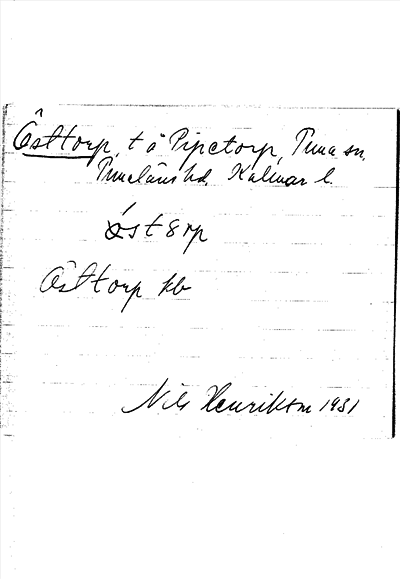 Östtorp, t å Pipetorp, Tuna sn,
Tunaläns hd, Kalmar l.
östərp
Östtorp kb
Nils Henrikson 1931